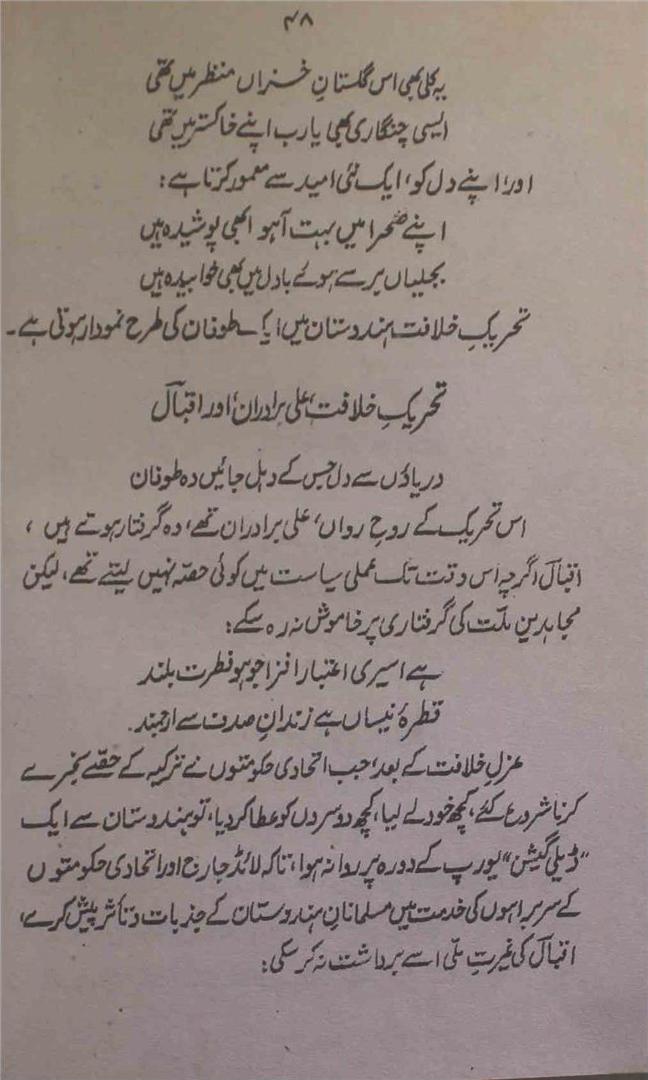 ۴۸
یہ کلی بھی اس گلستانِ خزاں منظر میں تھی
ایسی چنگاری بھی یارب اپنے خاکستر میں تھی
اور، اپنے دل کو، ایک نئی امید سے معمور کرتا ہے:
اپنے صحرا میں بہت آہو ابھی پوشیدہ ہیں
بجلیاں برسے ہوئے بادل میں بھی خوابیدہ ہیں
تحریکِ خلافت ہندوستان میں ایک طوفان کی طرح نمودار ہوتی ہے۔
تحریکِ خلافت، علی برادران، اور اقبالؔ
دریاؤں سے دل جس کے دہل جائیں وہ طوفان
اس تحریک کے روحِ رواں، علی برادران تھے، وہ گرفتار ہوتے ہیں،
اقبالؔ اگرچہ اس وقت تک عملی سیاست میں کوئی حصہ نہیں لیتے تھے، لیکن
مجاہدینِ ملّت کی گرفتاری پر خاموش نہ رہ سکے:
ہے اسیری اعتبار افزا جو ہو فطرت بلند
قطرۂ نیساں ہے زندانِ صدف سے ارجمند۔
عزلِ خلافت کے بعد، جب اتحادی حکومتوں نے ترکیہ کے حصّے بخرے
کرنا شروع کئے، کچھ خود لے لیا، کچھ دوسروں کو عطا کر دیا، تو ہندوستان سے ایک
"ڈیلی گیشن" یورپ کے دورہ پر روانہ ہوا، تاکہ لائڈ جارج اور اتحادی حکومتوں
کے سربراہوں کی خدمت میں مسلمانانِ ہندوستان کے جذبات و تأثر پیش کرے،
اقبالؔ کی غیرتِ ملّی اسے برداشت نہ کر سکی: